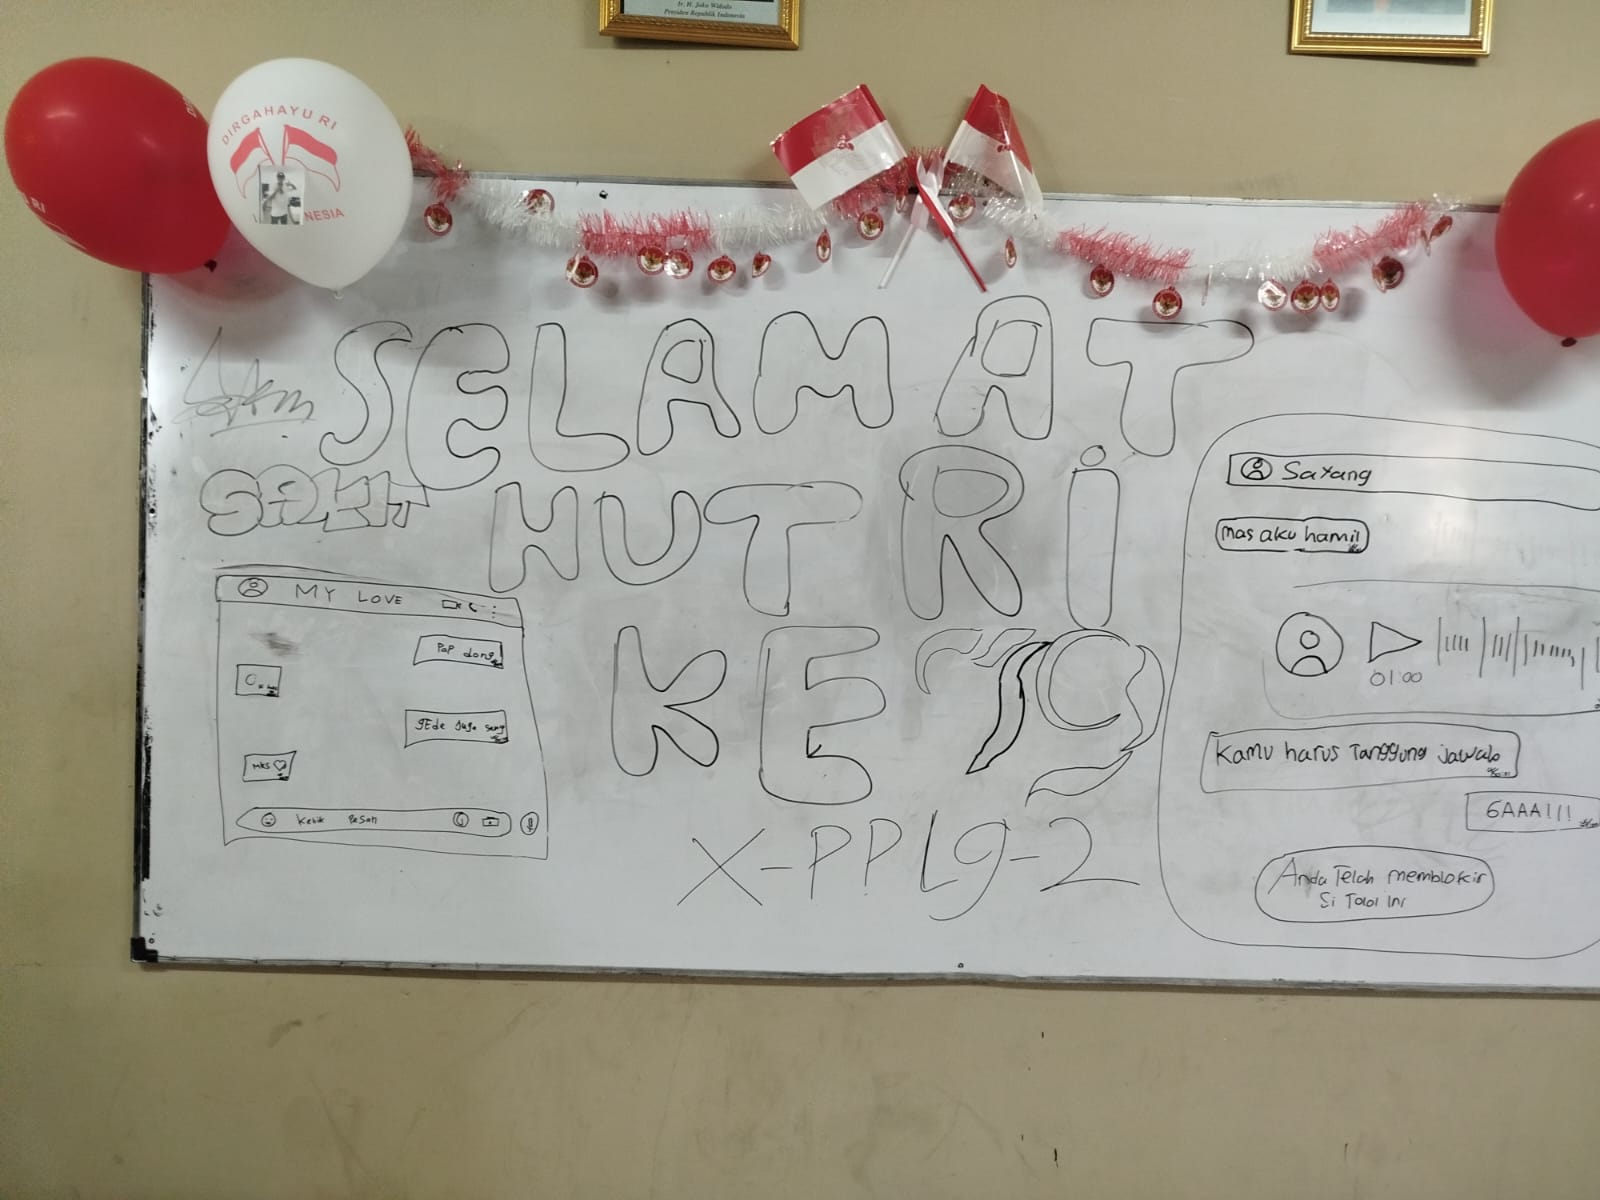 Ir. H. Joko Widodo
Presiden Republik Indonesia
DIRGAHAYU RI
NESIA
RI
SELAMAT
SAKIT
HUT RI
KE 79
X-PPLG-2
MY LOVE
PaP dong
gEde Juga sang
MKS
Ketik Pesan
Sayang
mas aku hamil
01:00
Kamu harus Tanggung jawab
GAAA!!!
Anda Telah memblokir
Si Tolol Ini